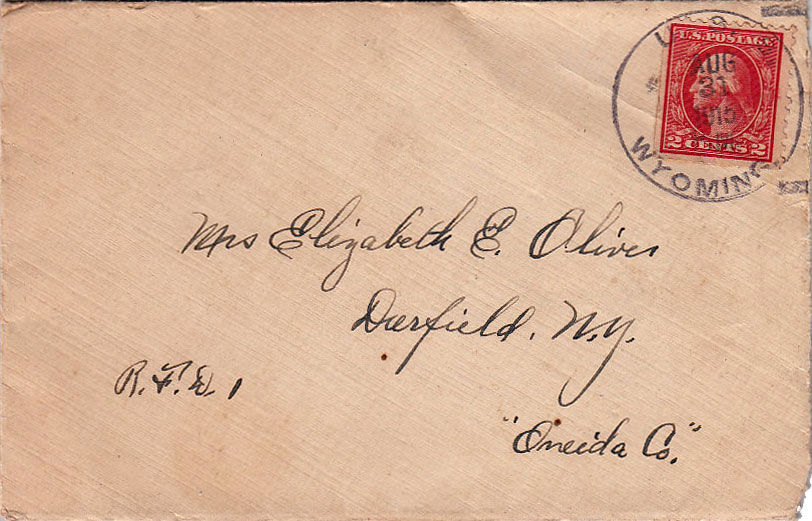 U.S. POSTAGE
AUG
31
1915
2 CENTS 2
WYOMING
Mrs Elizabeth E. Oliver
Deerfield, N.Y.
R.F.D. 1
"Oneida Co."